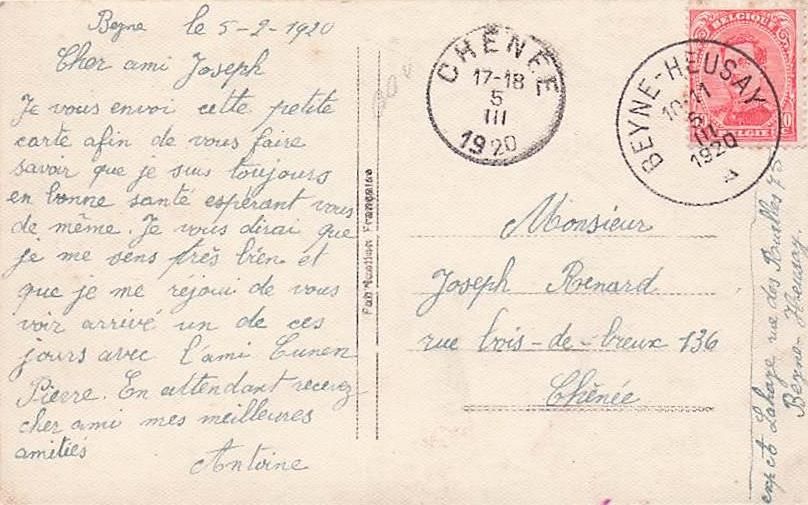 Beyne le 5-2-1920
Cher ami Joseph
Je vous envoi cette petite
carte afin de vous faire
savoir que je suis toujours
en bonne santé espérant vous
de même. Je vous dirai que
je me sens très bien et
que je me réjoui de vous
voir arrivé un de ces
jours avec l'ami Cunen
Pierre. En attendant recevez
cher ami mes meilleures
amitiés
Antoine
Fabrication Française
CHENÉE
17-18
5
III
1920
BEYNE-HEUSAY
10-11
5
III
1920
A
BELGIQUE
BELGIË
Monsieur
Joseph Renard
rue bois-de-breux 136
Chênée
exp A Lahaye rue des Ruelles 75
Beyne-Heusay.